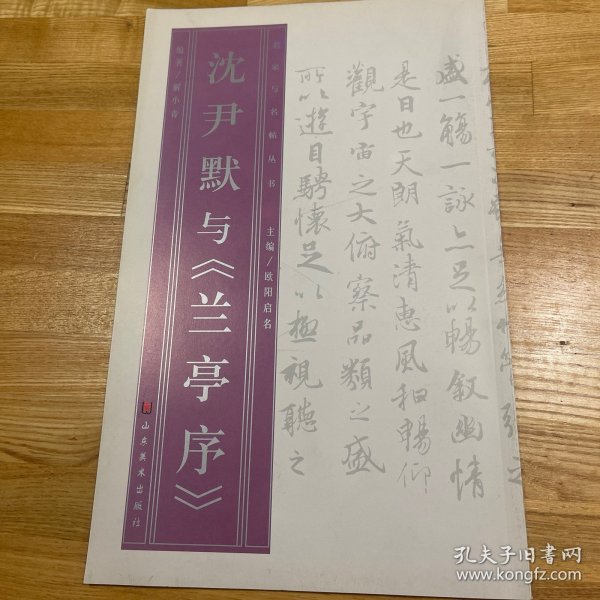 名家与名帖丛书
主编/欧阳启名
沈尹默与《兰亭序》
编著/解小青
山东美术出版社
盛一觞一詠亦足以暢叙幽情
是日也天朗氣清惠風和暢仰
觀宇宙之大俯察品類之盛
所以遊目騁懷足以極視聽之
孔夫子旧书网
www.kongfz.com